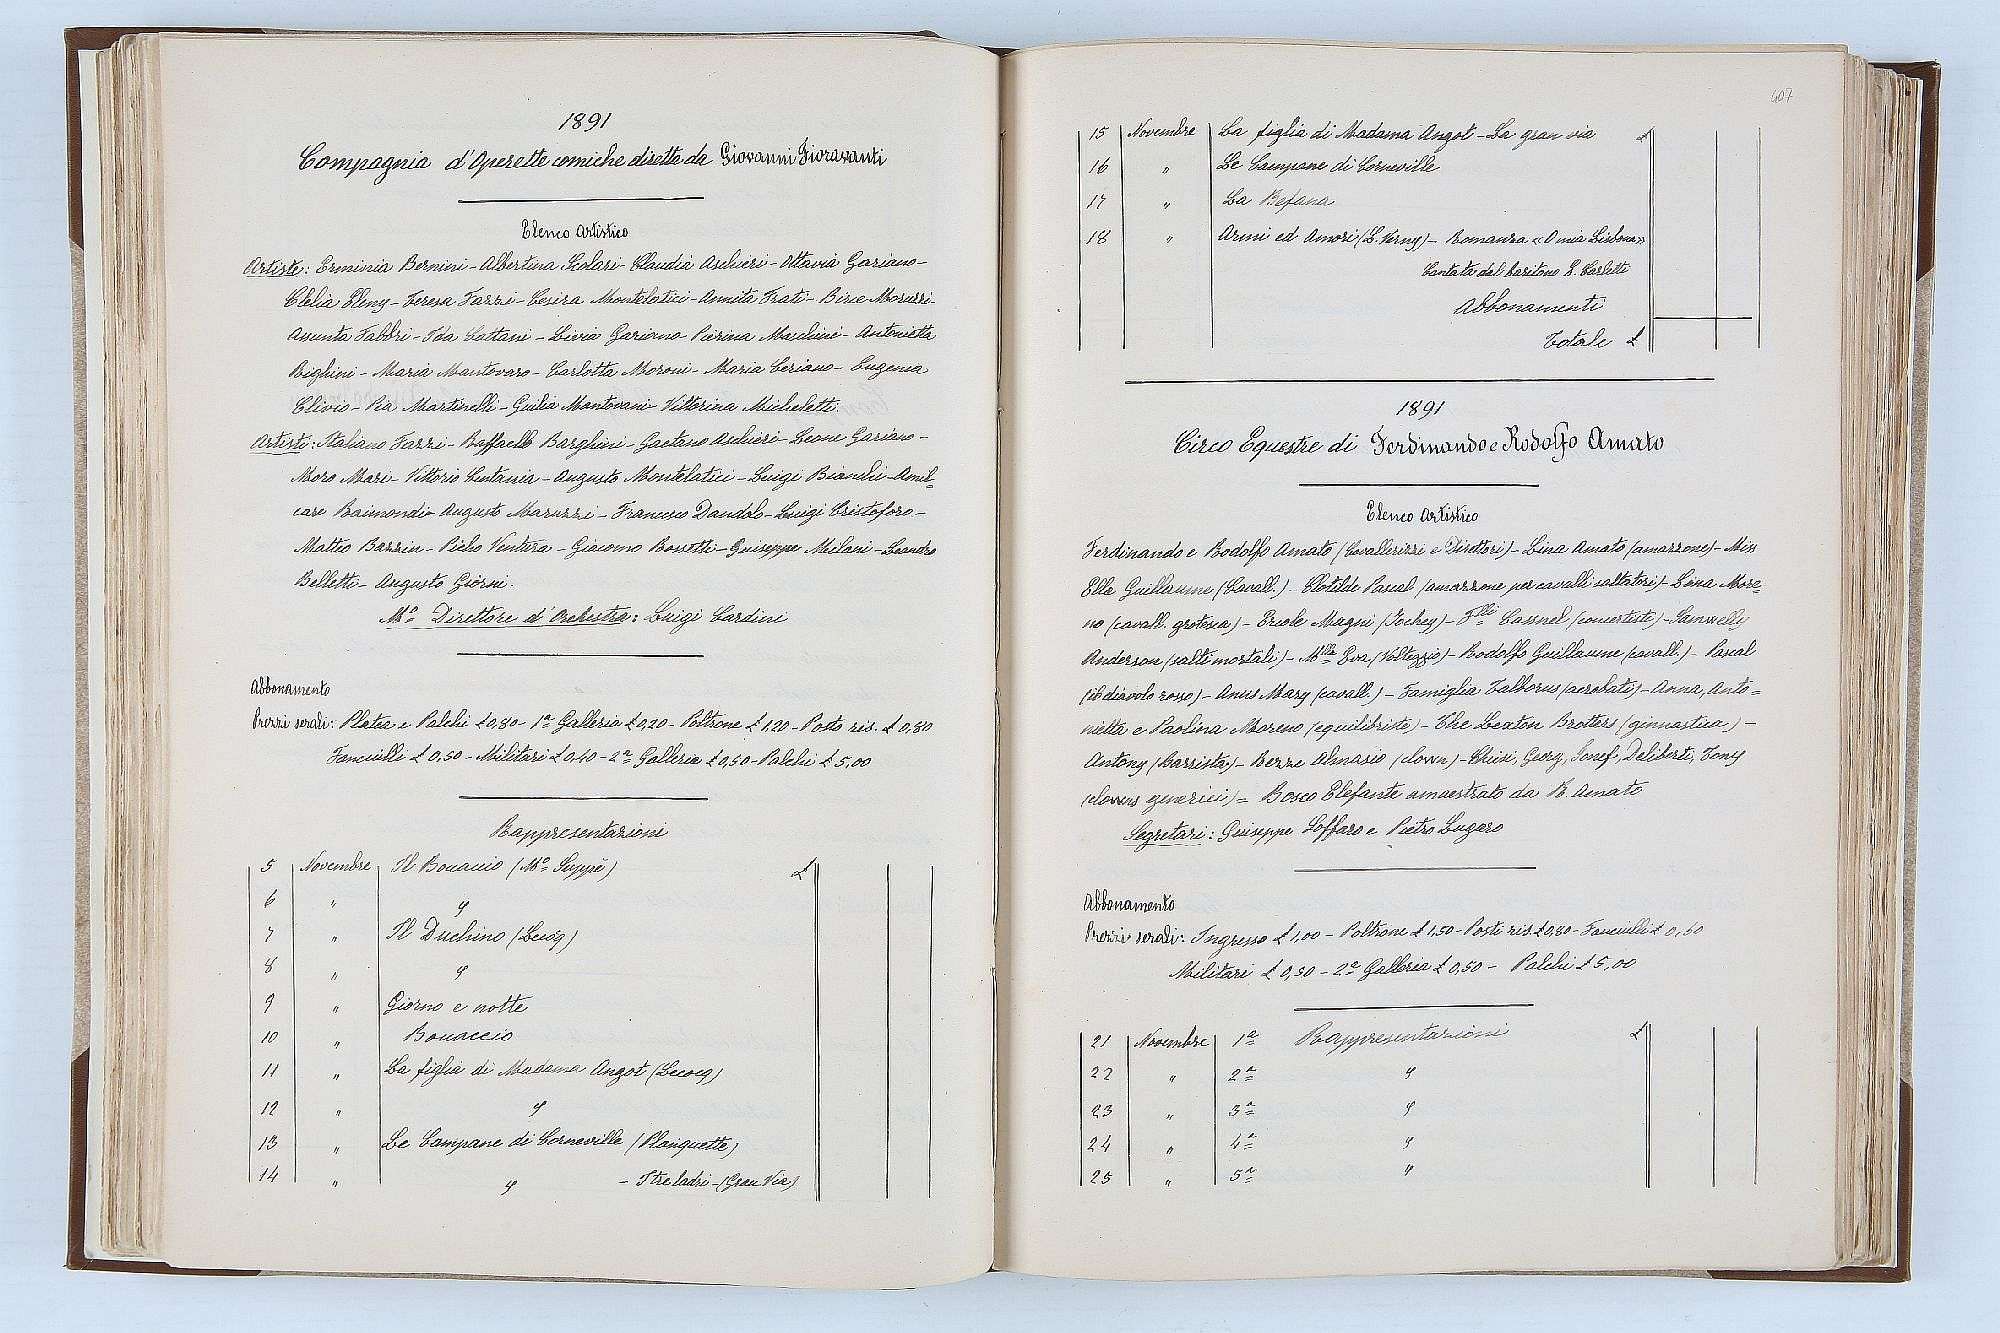 1891
Compagnia d'Operette comiche diretta da Giovanni Fioravanti
Elenco Artistico
Artiste: Erminia Bernini - Albertina Scolari - Claudia Aschieri - Ottavia Gariano -
Clelia Eleny - Teresa Fazzi - Cesira Montelatici - Annita Frati - Birce Moruzzi -
Assunta Fabbri - Ida Cattani - Livia Garierno - Pierina Maschini - Antonietta
Bighini - Maria Mantovaro - Carlotta Moroni - Maria Ceriano - Eugenia
Clivio - Pia Martinelli - Giulia Mantovani - Vittorina Micheletti.
Artisti: Italiano Fazzi - Raffaello Barghini - Gaetano Aschieri - Leone Gariano -
Moro Mari - Vittorio Centania - Augusto Montelatici - Luigi Bianchi - Amil=
care Raimondi - Augusto Maruzzi - Francesco Dandolo - Luigi Cristoforo -
Matteo Bazzin - Picho Ventura - Giacomo Bossetti - Guiseppe Milani - Leandro
Belletti - Augusto Giorni.
Mo Direttore d'Orchestra: Luigi Cardini
Abbonamento
Prezzi serali: Platea e Palchi £ 0,80 - 1a Galleria £ 0,20 - Poltrone £ 1,20 - Posto ris. £ 0,80
Fanciulli £ 0,50 - Militari £ 0,40 - 2a Galleria £ 0,50 - Palchi £ 5,00
Rappresentazioni
5 Novembre Il Boccaccio (Mo Suppè) £
6 " "
7 " Il Duchino (Lecocq)
8 " "
9 " Giorno e notte
10 " Boccaccio
11 " La figlia di Madama Angot (Lecocq)
12 " "
13 " Le Campane di Corneville (Planquette)
14 " " - I tre ladri - (Gran Via)
407
15 Novembre La figlia di Madama Angot - La gran via £
16 " Le Campane di Corneville
17 " La Befana
18 " Armi ed Amori (L. Verny) - Romanza «O mia Lisbona»
Cantata dal baritono E. Carletti
Abbonamenti
Totale £
1891
Circo Equestre di Ferdinando e Rodolfo Amato
Elenco Artistico
Ferdinando e Rodolfo Amato (Cavallerizzi e Direttori) - Lina Amato (amazzone) - Miss
Ella Guillaume (Cavall.) - Clotilde Pascal (amazzone per cavalli saltatori) - Lena More=
no (cavall. grotesca) - Ercole Magni (Jockey) - Flli Cassnel (concertiste) - Samwells
Anderson (salti mortali) - Mlle Eva (Volteggio) - Rodolfo Guillaume (cavall.) - Pascal
(il diavolo rosso) - Anus Mary (cavall.) - Famiglia Talborus (acrobati) - Anna, Anto=
nietta e Paolina Moreno (equilibriste) - The Lexton Brotters (ginnastica) -
Antony (barrista) - Bezze Almasio (clown) - Briix, Georg, Jonef, Deliberti, Tony
(clowns generici) = Bosco Elefante amaestrato da R. Amato
Segretari: Guiseppe Loffaro e Pietro Lugaro
Abbonamento
Prezzi serali: Ingresso £ 1,00 - Poltrone £ 1,50 - Posti ris. £ 0,80 - Fanciulli £ 0,60
Militari £ 0,50 - 2a Galleria £ 0,50 - Palchi £ 5,00
21 Novembre 1a Rappresentazioni £
22 " 2a "
23 " 3a "
24 " 4a "
25 " 5a "